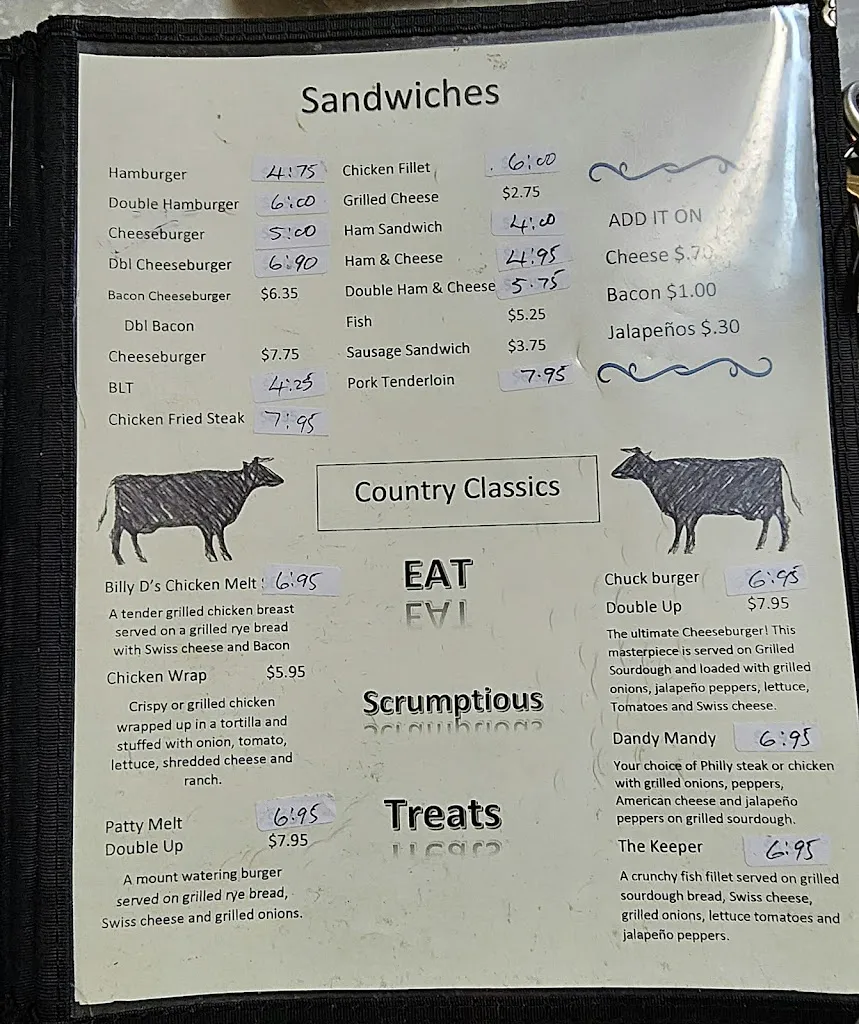 Sandwiches
Hamburger 4:75
Double Hamburger 6:00
Cheeseburger 5:00
Dbl Cheeseburger 6:90
Bacon Cheeseburger $6.35
Dbl Bacon
Cheeseburger $7.75
BLT 4:25
Chicken Fried Steak 7:95
Chicken Fillet 6:00
Grilled Cheese $2.75
Ham Sandwich 4:00
Ham & Cheese 4:95
Double Ham & Cheese 5.75
Fish $5.25
Sausage Sandwich $3.75
Pork Tenderloin 7.95
ADD IT ON
Cheese $.70
Bacon $1.00
Jalapeños $.30
Country Classics
Billy D's Chicken Melt 6:95
A tender grilled chicken breast
served on a grilled rye bread
with Swiss cheese and Bacon
Chicken Wrap $5.95
Crispy or grilled chicken
wrapped up in a tortilla and
stuffed with onion, tomato,
lettuce, shredded cheese and
ranch.
Patty Melt 6:95
Double Up $7.95
A mount watering burger
served on grilled rye bread,
Swiss cheese and grilled onions.
EAT
Scrumptious
Treats
Chuck burger 6:95
Double Up $7.95
The ultimate Cheeseburger! This
masterpiece is served on Grilled
Sourdough and loaded with grilled
onions, jalapeño peppers, lettuce,
Tomatoes and Swiss cheese.
Dandy Mandy 6:95
Your choice of Philly steak or chicken
with grilled onions, peppers,
American cheese and jalapeño
peppers on grilled sourdough.
The Keeper 6:95
A crunchy fish fillet served on grilled
sourdough bread, Swiss cheese,
grilled onions, lettuce tomatoes and
jalapeño peppers.